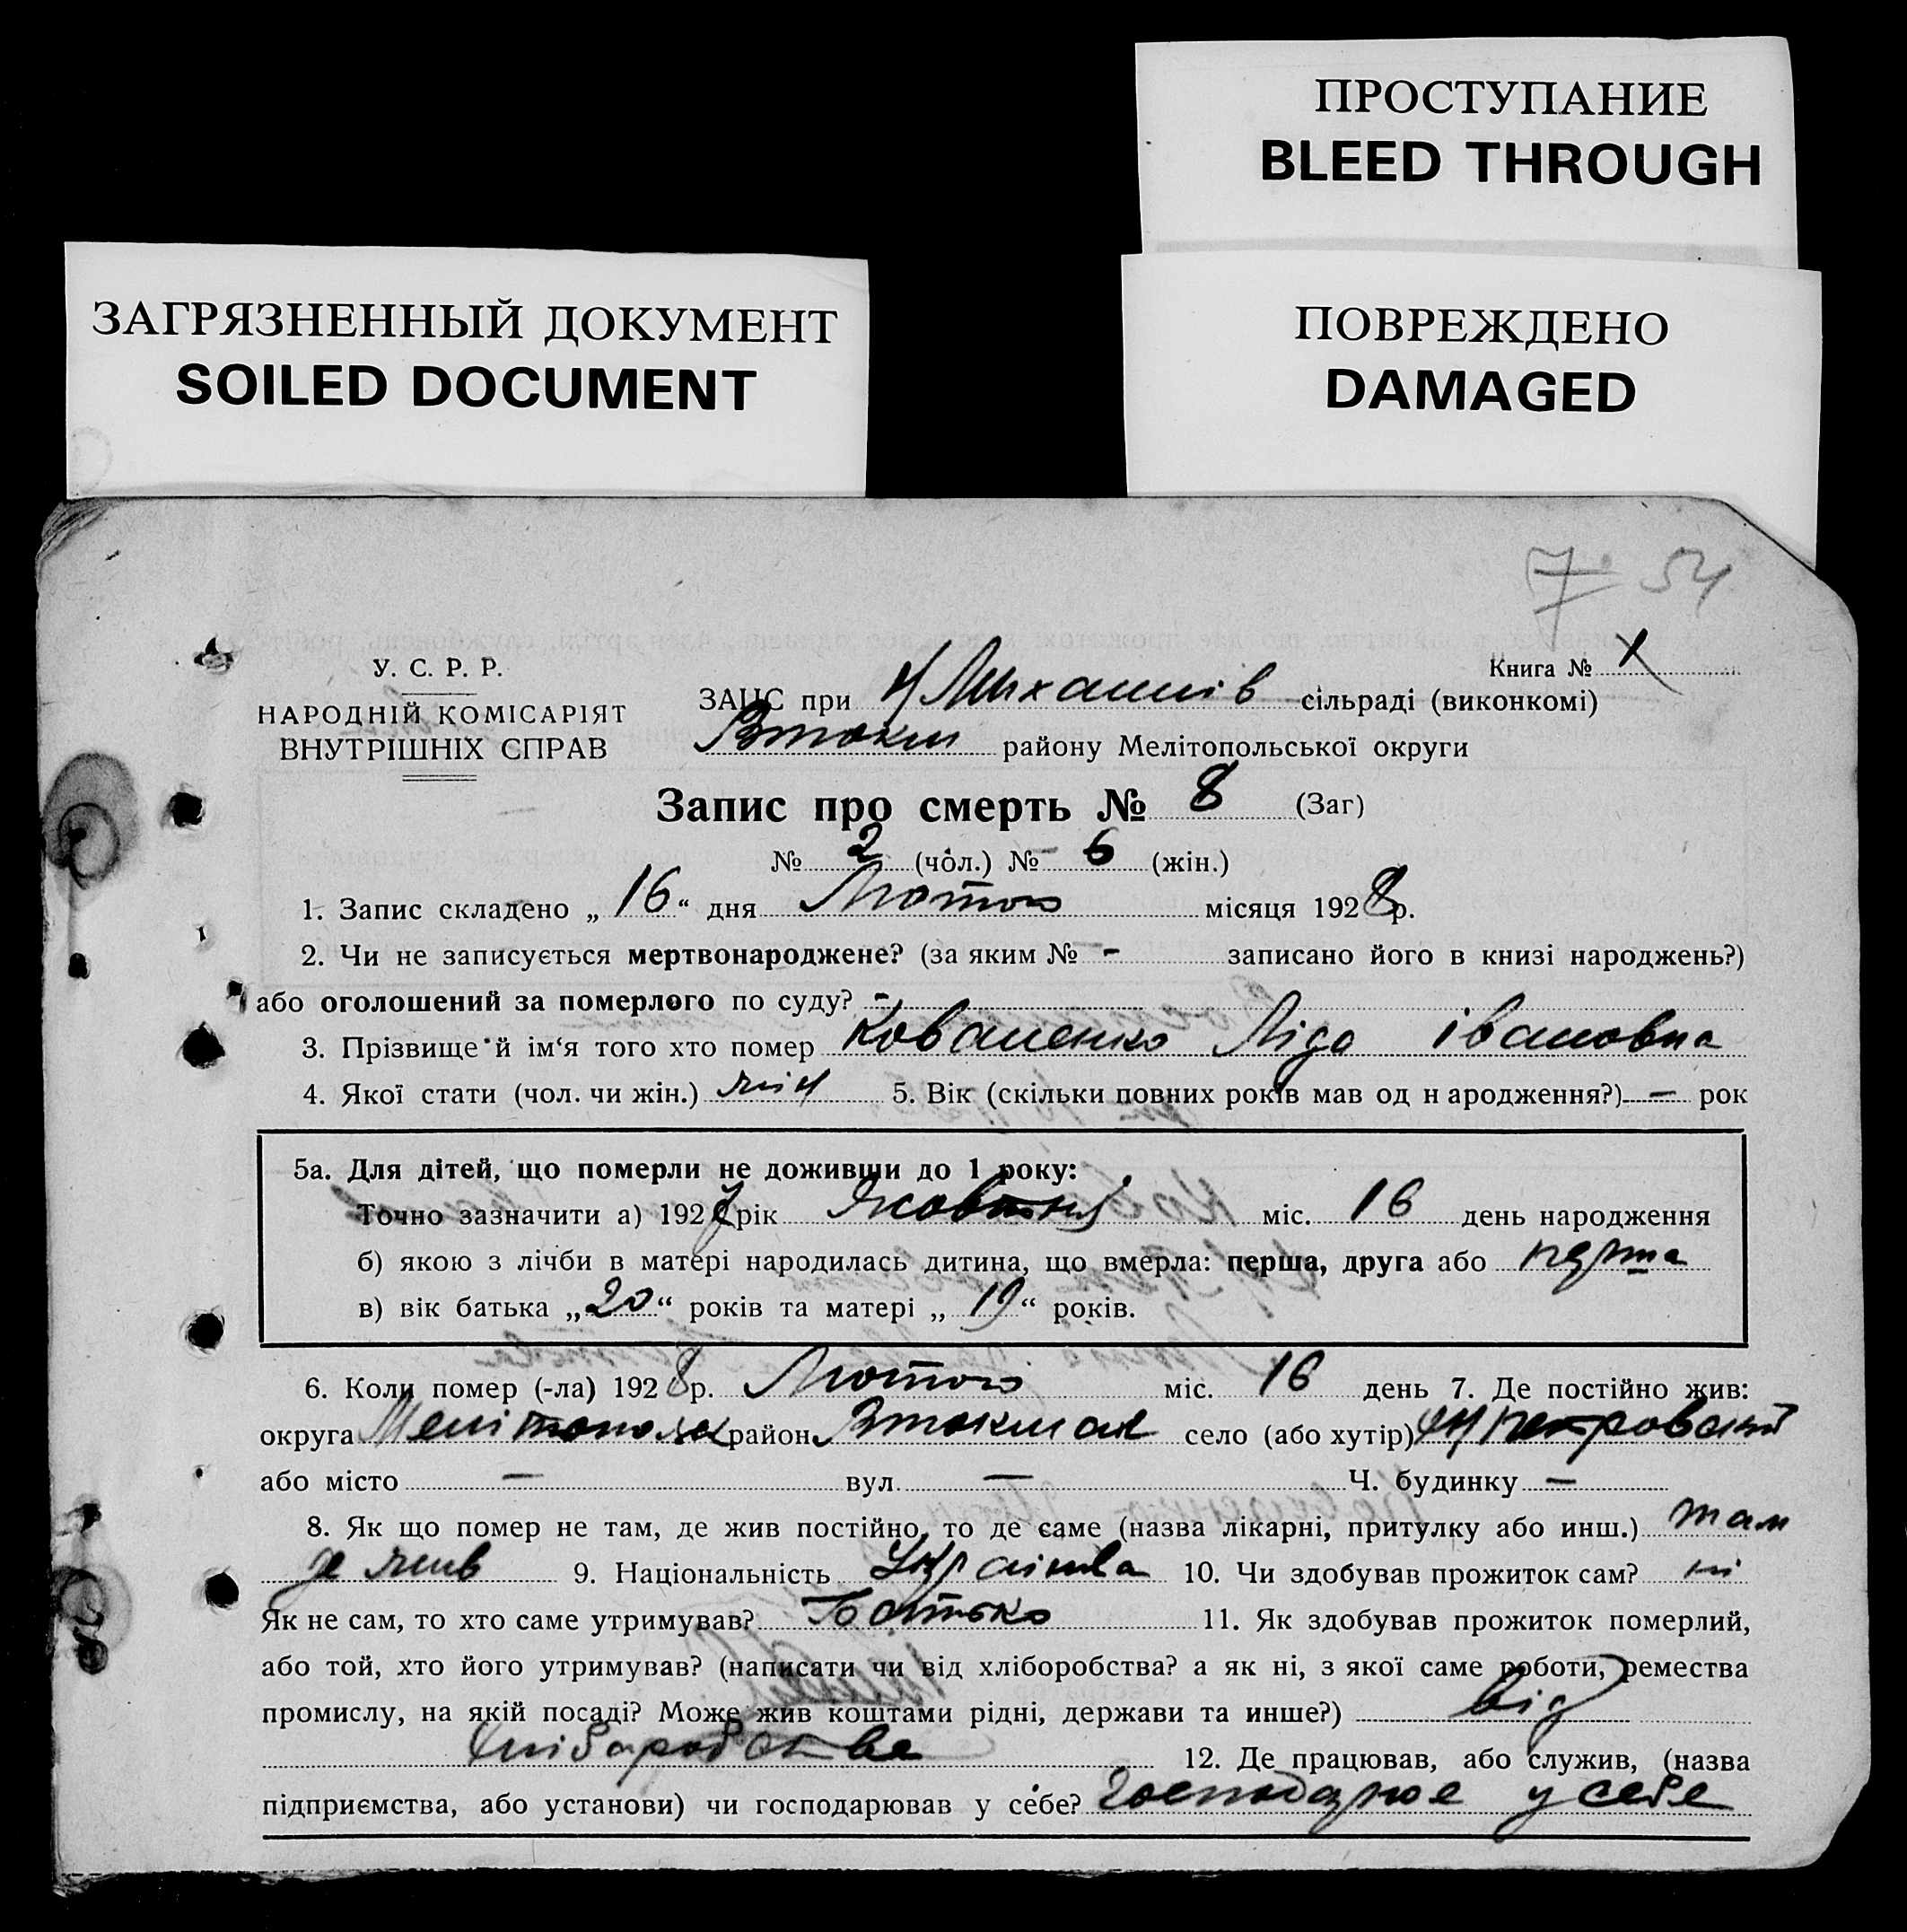 ПРОСТУПАНИЕ
BLEED THROUGH
ЗАГРЯЗНЕННЫЙ ДОКУМЕНТ
SOILED DOCUMENT
ПОВРЕЖДЕНО
DAMAGED
7 54
У. С. Р. Р.
НАРОДНІЙ КОМІСАРІЯТ
ВНУТРІШНІХ СПРАВ
Книга № 1
ЗАЦС при Михайлів сільраді (виконкомі)
Втокм району Мелітопольської округи
Запис про смерть № 8 (Заг)
№ 2 (чол.) № 6 (жін.)
1. Запис складено „ 16 “ дня Лютого місяця 1928 р.
2. Чи не записується мертвонароджене? (за яким № - записано його в книзі народжень?)
або оголошений за померлого по суду? -
3. Прізвище й ім‘я того хто помер Коваленко Ліда Івановна
4. Якої стати (чол. чи жін.) жін 5. Вік (скільки повних років мав од н ародження?) — рок
5а. Для дітей, що померли не доживши до 1 року:
Точно зазначити а) 1927 рік Жовтня міс. 16 день народження
б) якою з лічби в матері народилась дитина, що вмерла: перша, друга або перша
в) вік батька „ 20 “ років та матері „ 19 “ років.
6. Коли помер (-ла) 1928 р. Лютого міс. 16 день 7. Де постійно жив:
округа район Втокмак село (або хутір)
або місто — вул. — Ч. будинку —
8. Як що помер не там, де жив постійно, то де саме (назва лікарні, притулку або инш.) там
де жив 9. Національність Українка 10. Чи здобував прожиток сам? ні
Як не сам, то хто саме утримував? Батько 11. Як здобував прожиток померлий,
або той, хто його утримував? (написати чи від хліборобства? а як ні, з якої саме роботи, ремества
промислу, на якій посаді? Може жив коштами рідні, держави та инше?) від
хліборобства 12. Де працював, або служив, (назва
підприємства, або установи) чи господарював у себе? господарює у себе